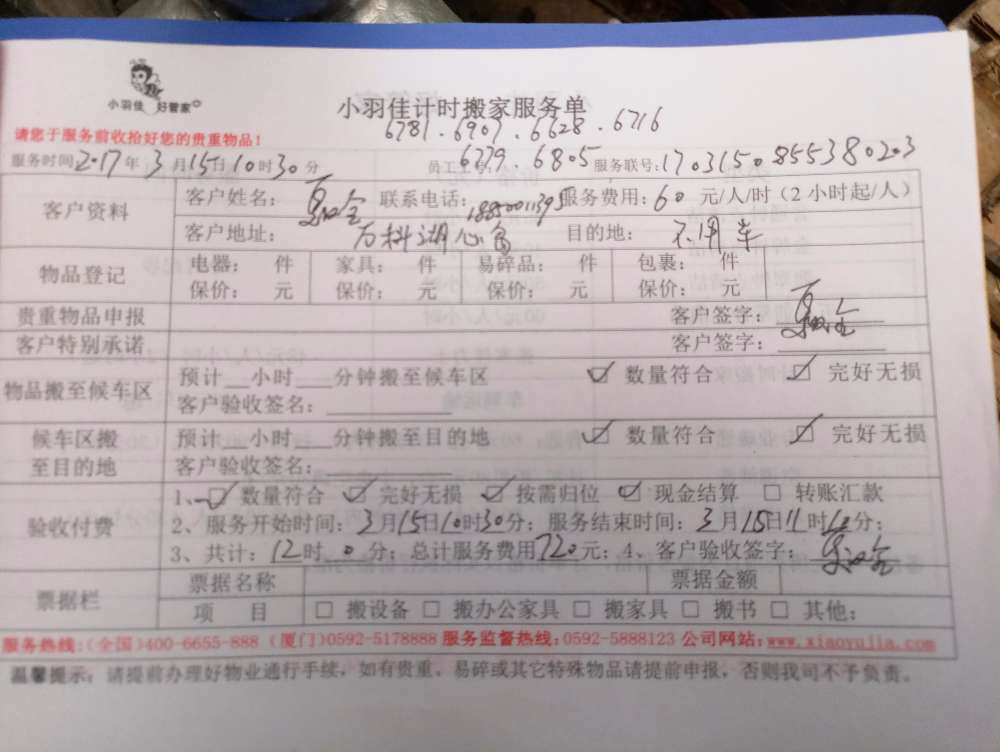 小羽佳 好管家
小羽佳计时搬家服务单
6781.6907.6628.6716
请您于服务前收拾好您的贵重物品！
6779.6805
服务时间2017年3月15日10时30分 员工工号: 服务联号:1703150855380203
客户资料 客户姓名: 联系电话: 服务费用:60元/人/时(2小时起/人)
客户地址: 万科湖心岛 目的地: 不用车
物品登记 电器: 件 家具: 件 易碎品: 件 包裹: 件
保价: 元 保价: 元 保价: 元 保价: 元
贵重物品申报 客户签字:
客户特别承诺 客户签字:
物品搬至候车区 预计__小时___分钟搬至候车区 ☑ 数量符合 ☑ 完好无损
客户验收签名:
候车区搬至目的地 预计__小时___分钟搬至目的地 ☑ 数量符合 ☑ 完好无损
客户验收签名:
验收付费 1、☑ 数量符合 ☑ 完好无损 ☑ 按需归位 ☑ 现金结算 □ 转账汇款
2、服务开始时间:3月15日10时30分; 服务结束时间:3月15日11时10分;
3、共计:12时.0分; 总计服务费用720元; 4、客户验收签字:
票据栏 票据名称 票据金额
项 目 □ 搬设备 □ 搬办公家具 □ 搬家具 □ 搬书 □ 其他:
服务热线:(全国)400-6655-888 (厦门)0592-5178888 服务监督热线:0592-5888123 公司网站:www.xiaoyujia.com
温馨提示: 请提前办理好物业通行手续，如有贵重、易碎或其它特殊物品请提前申报，否则我司不予负责。